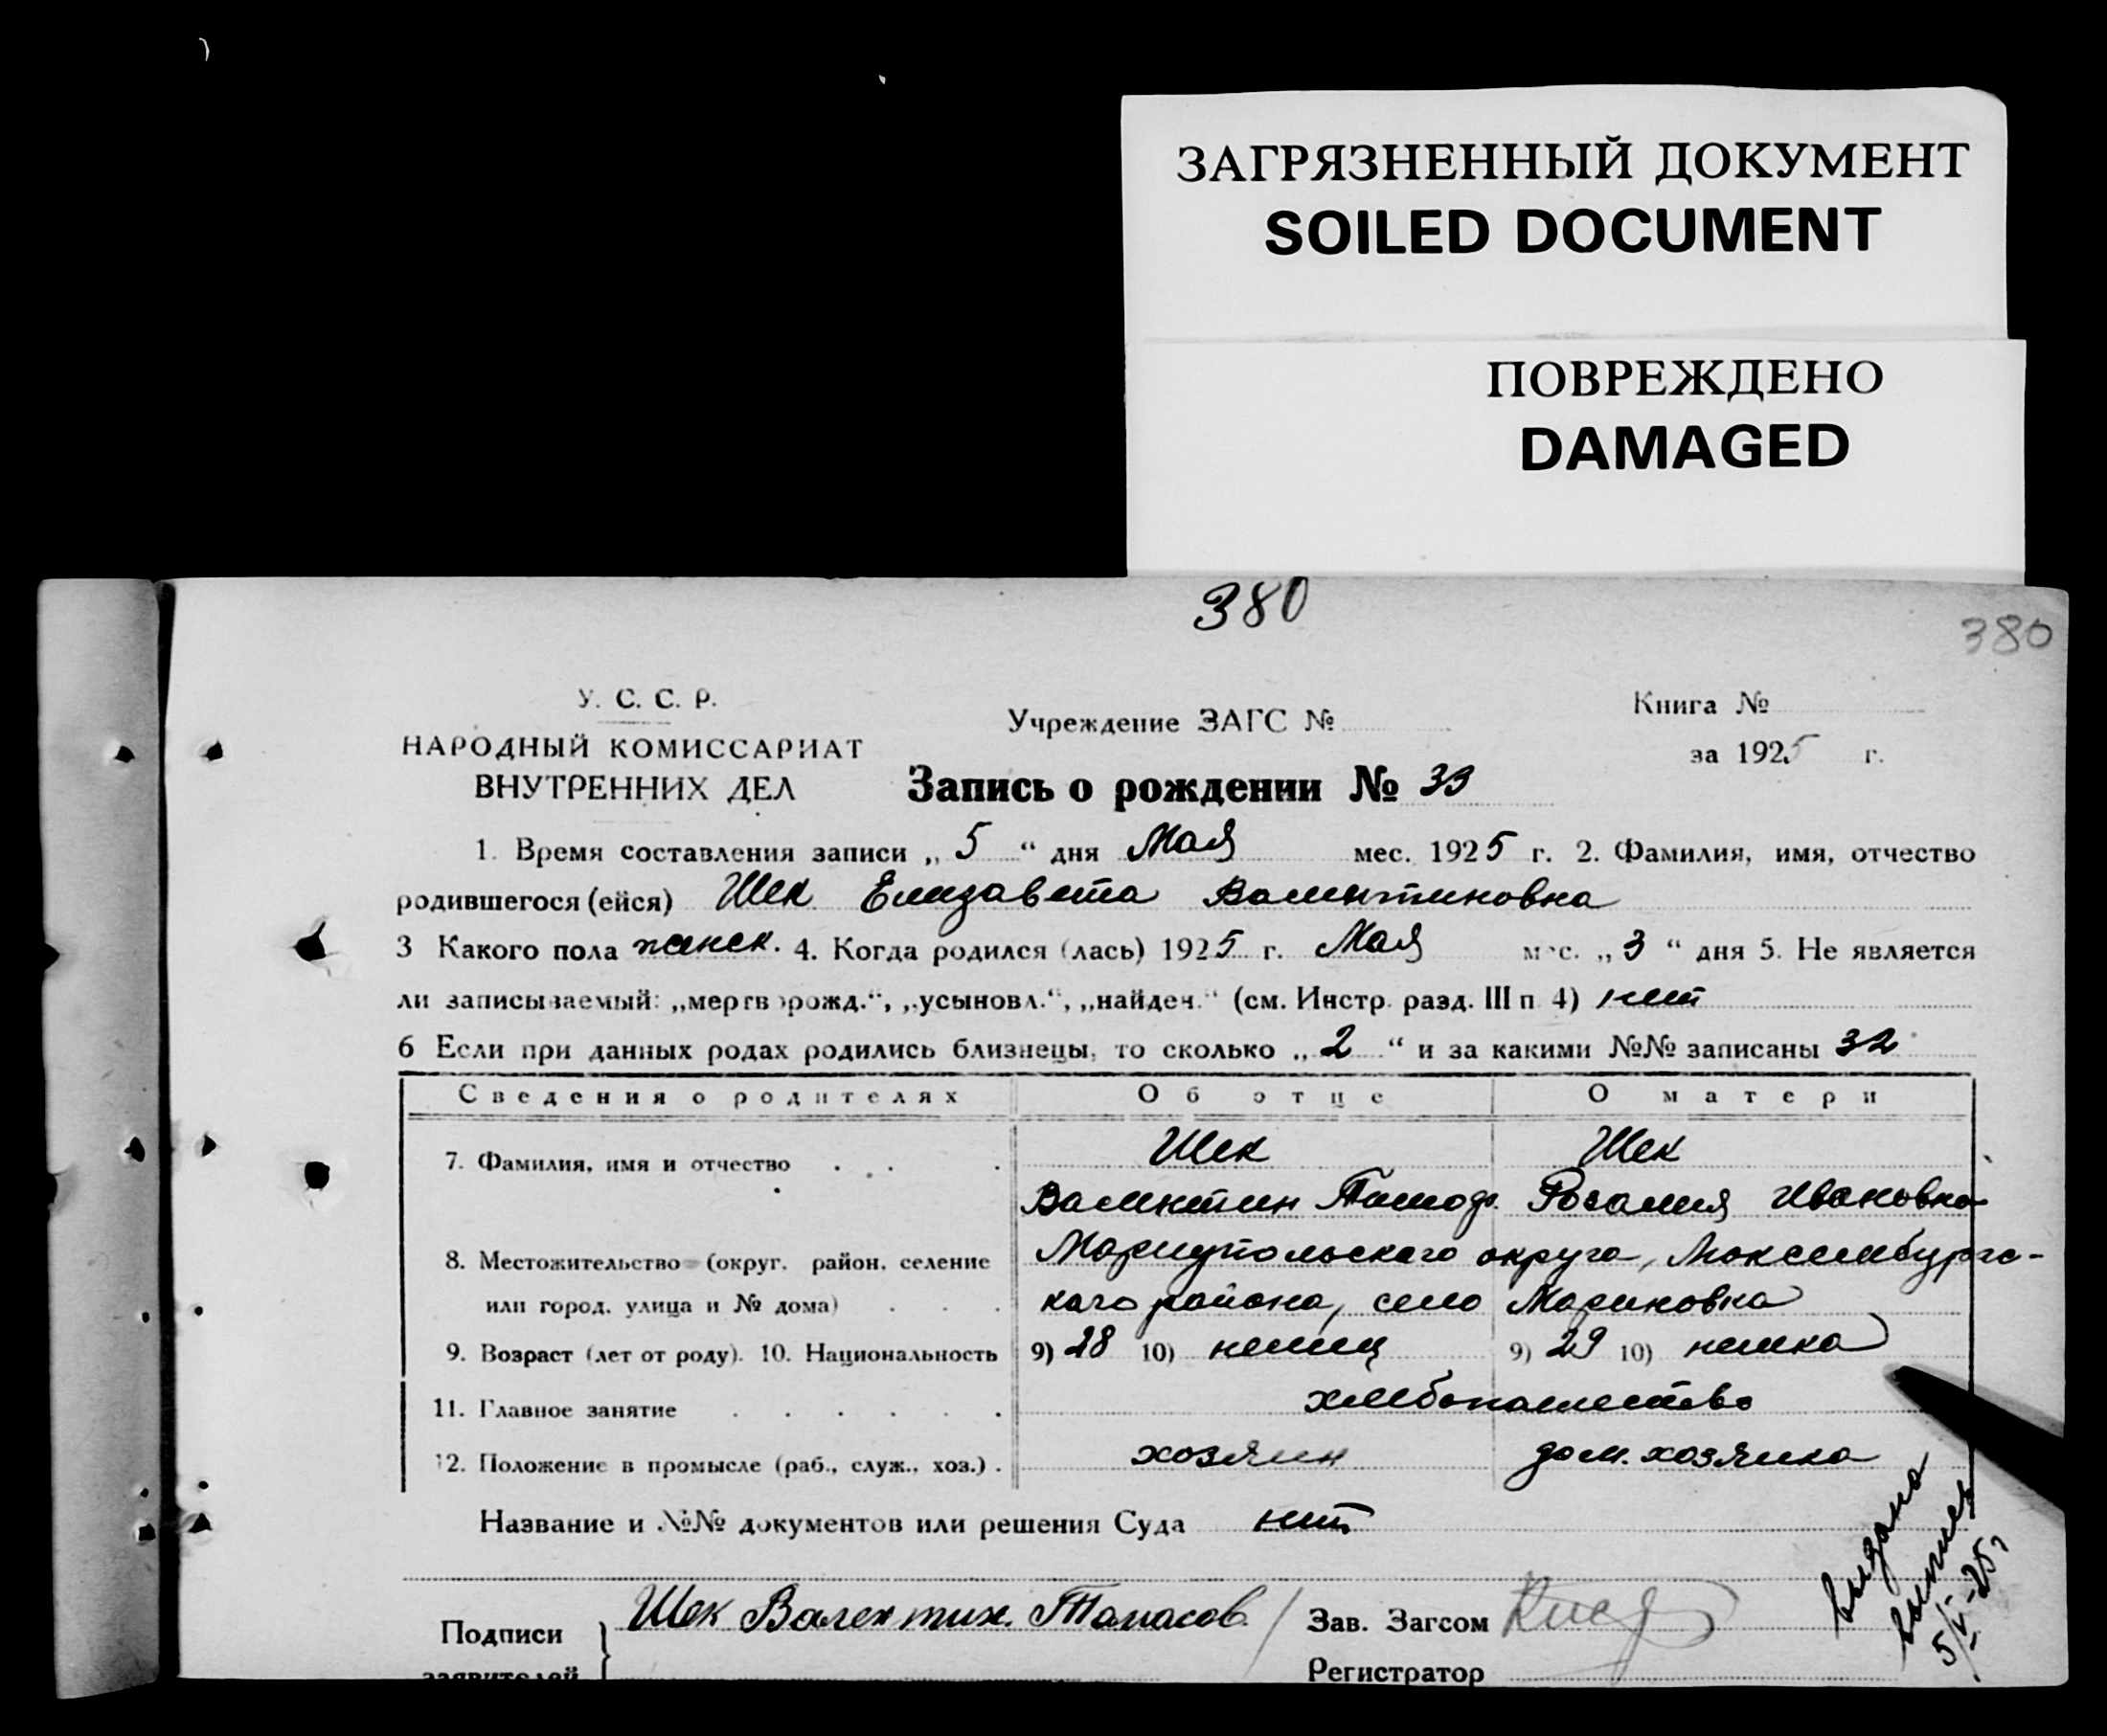 ЗАГРЯЗНЕННЫЙ ДОКУМЕНТ
SOILED DOCUMENT
ПОВРЕЖДЕНО
DAMAGED
380
380
У. С. С. Р.
НАРОДНЫЙ КОМИССАРИАТ
ВНУТРЕННИХ ДЕЛ
Учреждение ЗАГС №
Книга №
за 1925 г.
Запись о рождении № 33
1. Время составления записи „ 5 “ дня Мая мес. 1925 г. 2. Фамилия, имя, отчество
родившегося (ейся) Шек Елизавета Валентиновна
3 Какого пола женск. 4. Когда родился (лась) 1925 г. Мая мес. „ 3 “ дня 5. Не является
ли записываемый: „мертворожд.“, „усыновл.“, „найден.“ (см. Инстр. разд. III п 4) нет
6 Если при данных родах родились близнецы, то сколько „ 2 “ и за какими №№ записаны 32
Сведения о родителях Об отце О матери
7. Фамилия, имя и отчество Шек Шек
Валентин Розалия Ивановна
8. Местожительство (округ, район, селение Мариупольского округа, Люксембургс-
или город, улица и № дома) кого района, село Мариновка
9. Возраст (лет от роду). 10. Национальность 9) 28 10) немец 9) 29 10) немка
11. Главное занятие хлебопашество
12. Положение в промысле (раб., служ., хоз.) хозяин дом. хозяйка
Название и №№ документов или решения Суда нет
выдана
выпись
5/V-25 г
Подписи Шек Валентин. Зав. Загсом
заявителей Регистратор